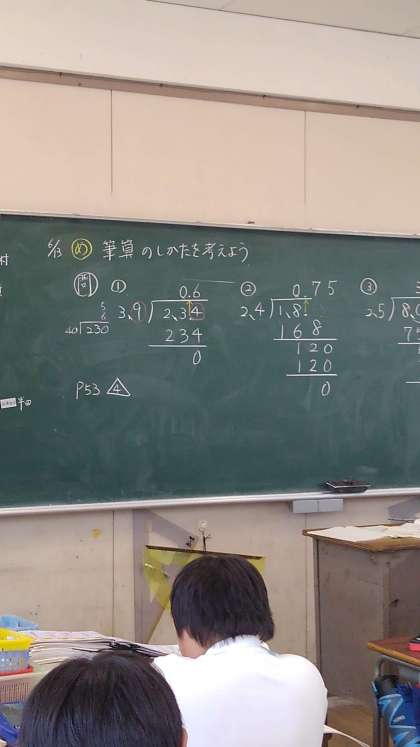 6/13 め 筆算のしかたを考えよう
問 ① 0.6
3.9) 2.34
234
0
5
6
40) 230
② 0.75
2.4) 1.8
168
120
120
0
③
2.5) 8.
7
P53 4
村
半田